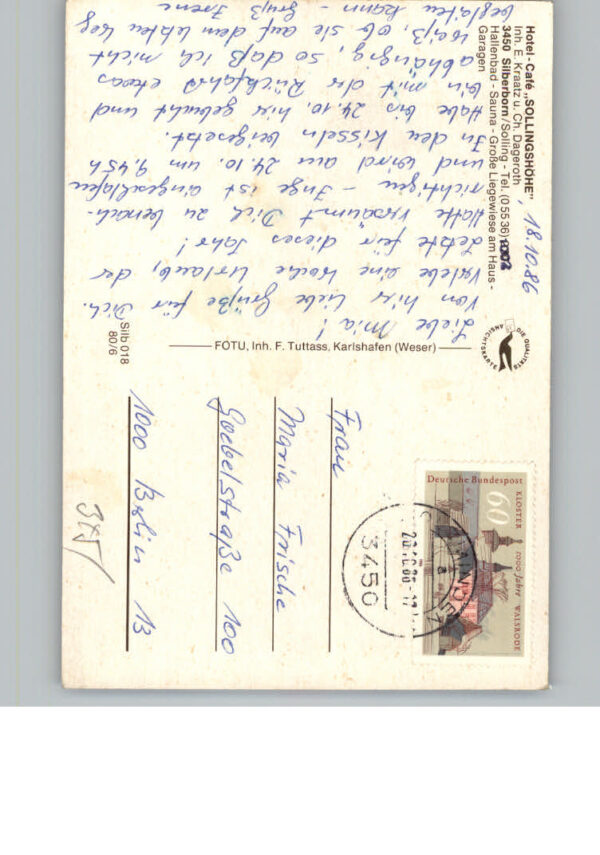 Hotel-Café „SOLLINGSHÖHE"
Inh. E. Kraatz u. Ch. Dageroth
3450 Silberborn/Solling - Tel. (0 55 36)
Hallenbad - Sauna - Große Liegewiese am Haus -
Garagen
18.10.86
Liebe Mia!
Von hier liebe Grüße für Dich.
Verlebe eine Woche Urlaub, der
letzte für dieses Jahr!
Hatte versäumt Dich zu benach-
richtigen - Inge ist eingeschlafen
und wird am 24.10. um 9.45 h
In den Kisseln beigesetzt.
Habe bis 24.10. hier gebucht und
bin mit der Rückfahrt etwas
abhängig, so daß ich nicht
weiß, ob sie auf dem letzten Weg
begleiten kann - Gruß Irene
Silb 018
80/6
FOTU, Inh. F. Tuttass, Karlshafen (Weser)
DIE QUALITÄTS
ANSICHTSKARTE
Deutsche Bundespost
60
KLOSTER
1000 Jahre
WALSRODE
3450
Frau
Maria Frische
Goebelstraße 100
1000 Berlin 13